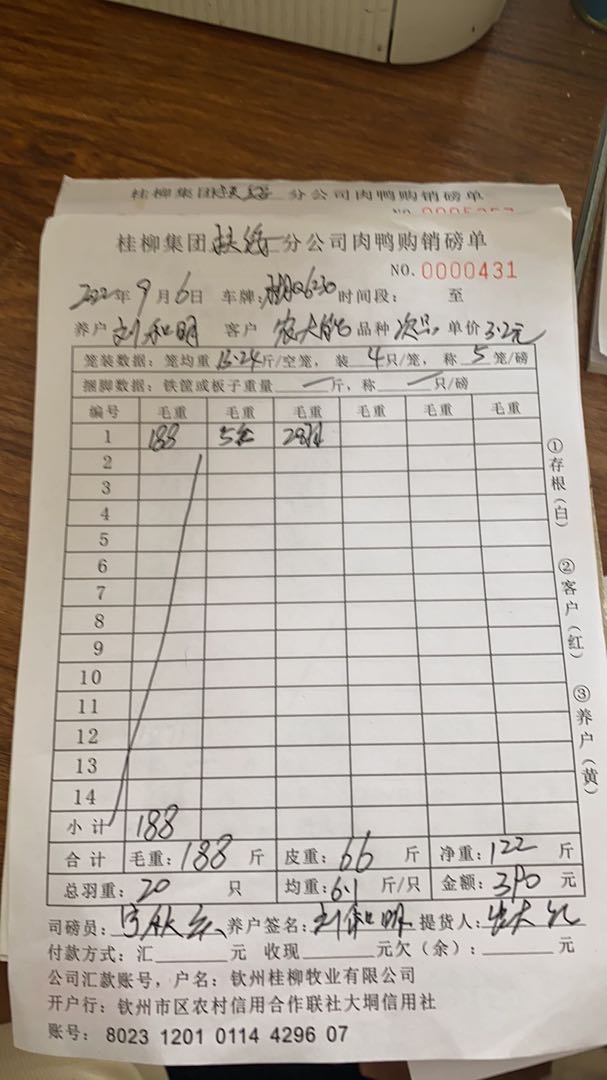 桂柳集团 分公司肉鸭购销磅单
NO.
桂柳集团扶绥分公司肉鸭购销磅单
NO. 0000431
2022年9月6日 车牌: Q6230 时间段: 至
养户 刘和明 客户 农大 品种 次品 单价 3.2元
笼装数据: 笼均重13.24斤/空笼, 装4只/笼, 称5笼/磅
捆脚数据: 铁筐或板子重量 — 斤, 称 — 只/磅
编号 毛重 毛重 毛重 毛重 毛重 毛重
1 188 5笼
2
3
4
5
6
7
8
9
10
11
12
13
14
小计 188
合计 毛重: 188 斤 皮重: 66 斤 净重: 122 斤
总羽重: 20 只 均重: 6.1 斤/只 金额: 390 元
司磅员: 养户签名: 刘和明 提货人: 农大
付款方式: 汇 元 收现 元欠(余): 元
公司汇款账号, 户名: 钦州桂柳牧业有限公司
开户行: 钦州市区农村信用合作联社大垌信用社
账号: 8023 1201 0114 4296 07
①存根(白)
②客户(红)
③养户(黄)